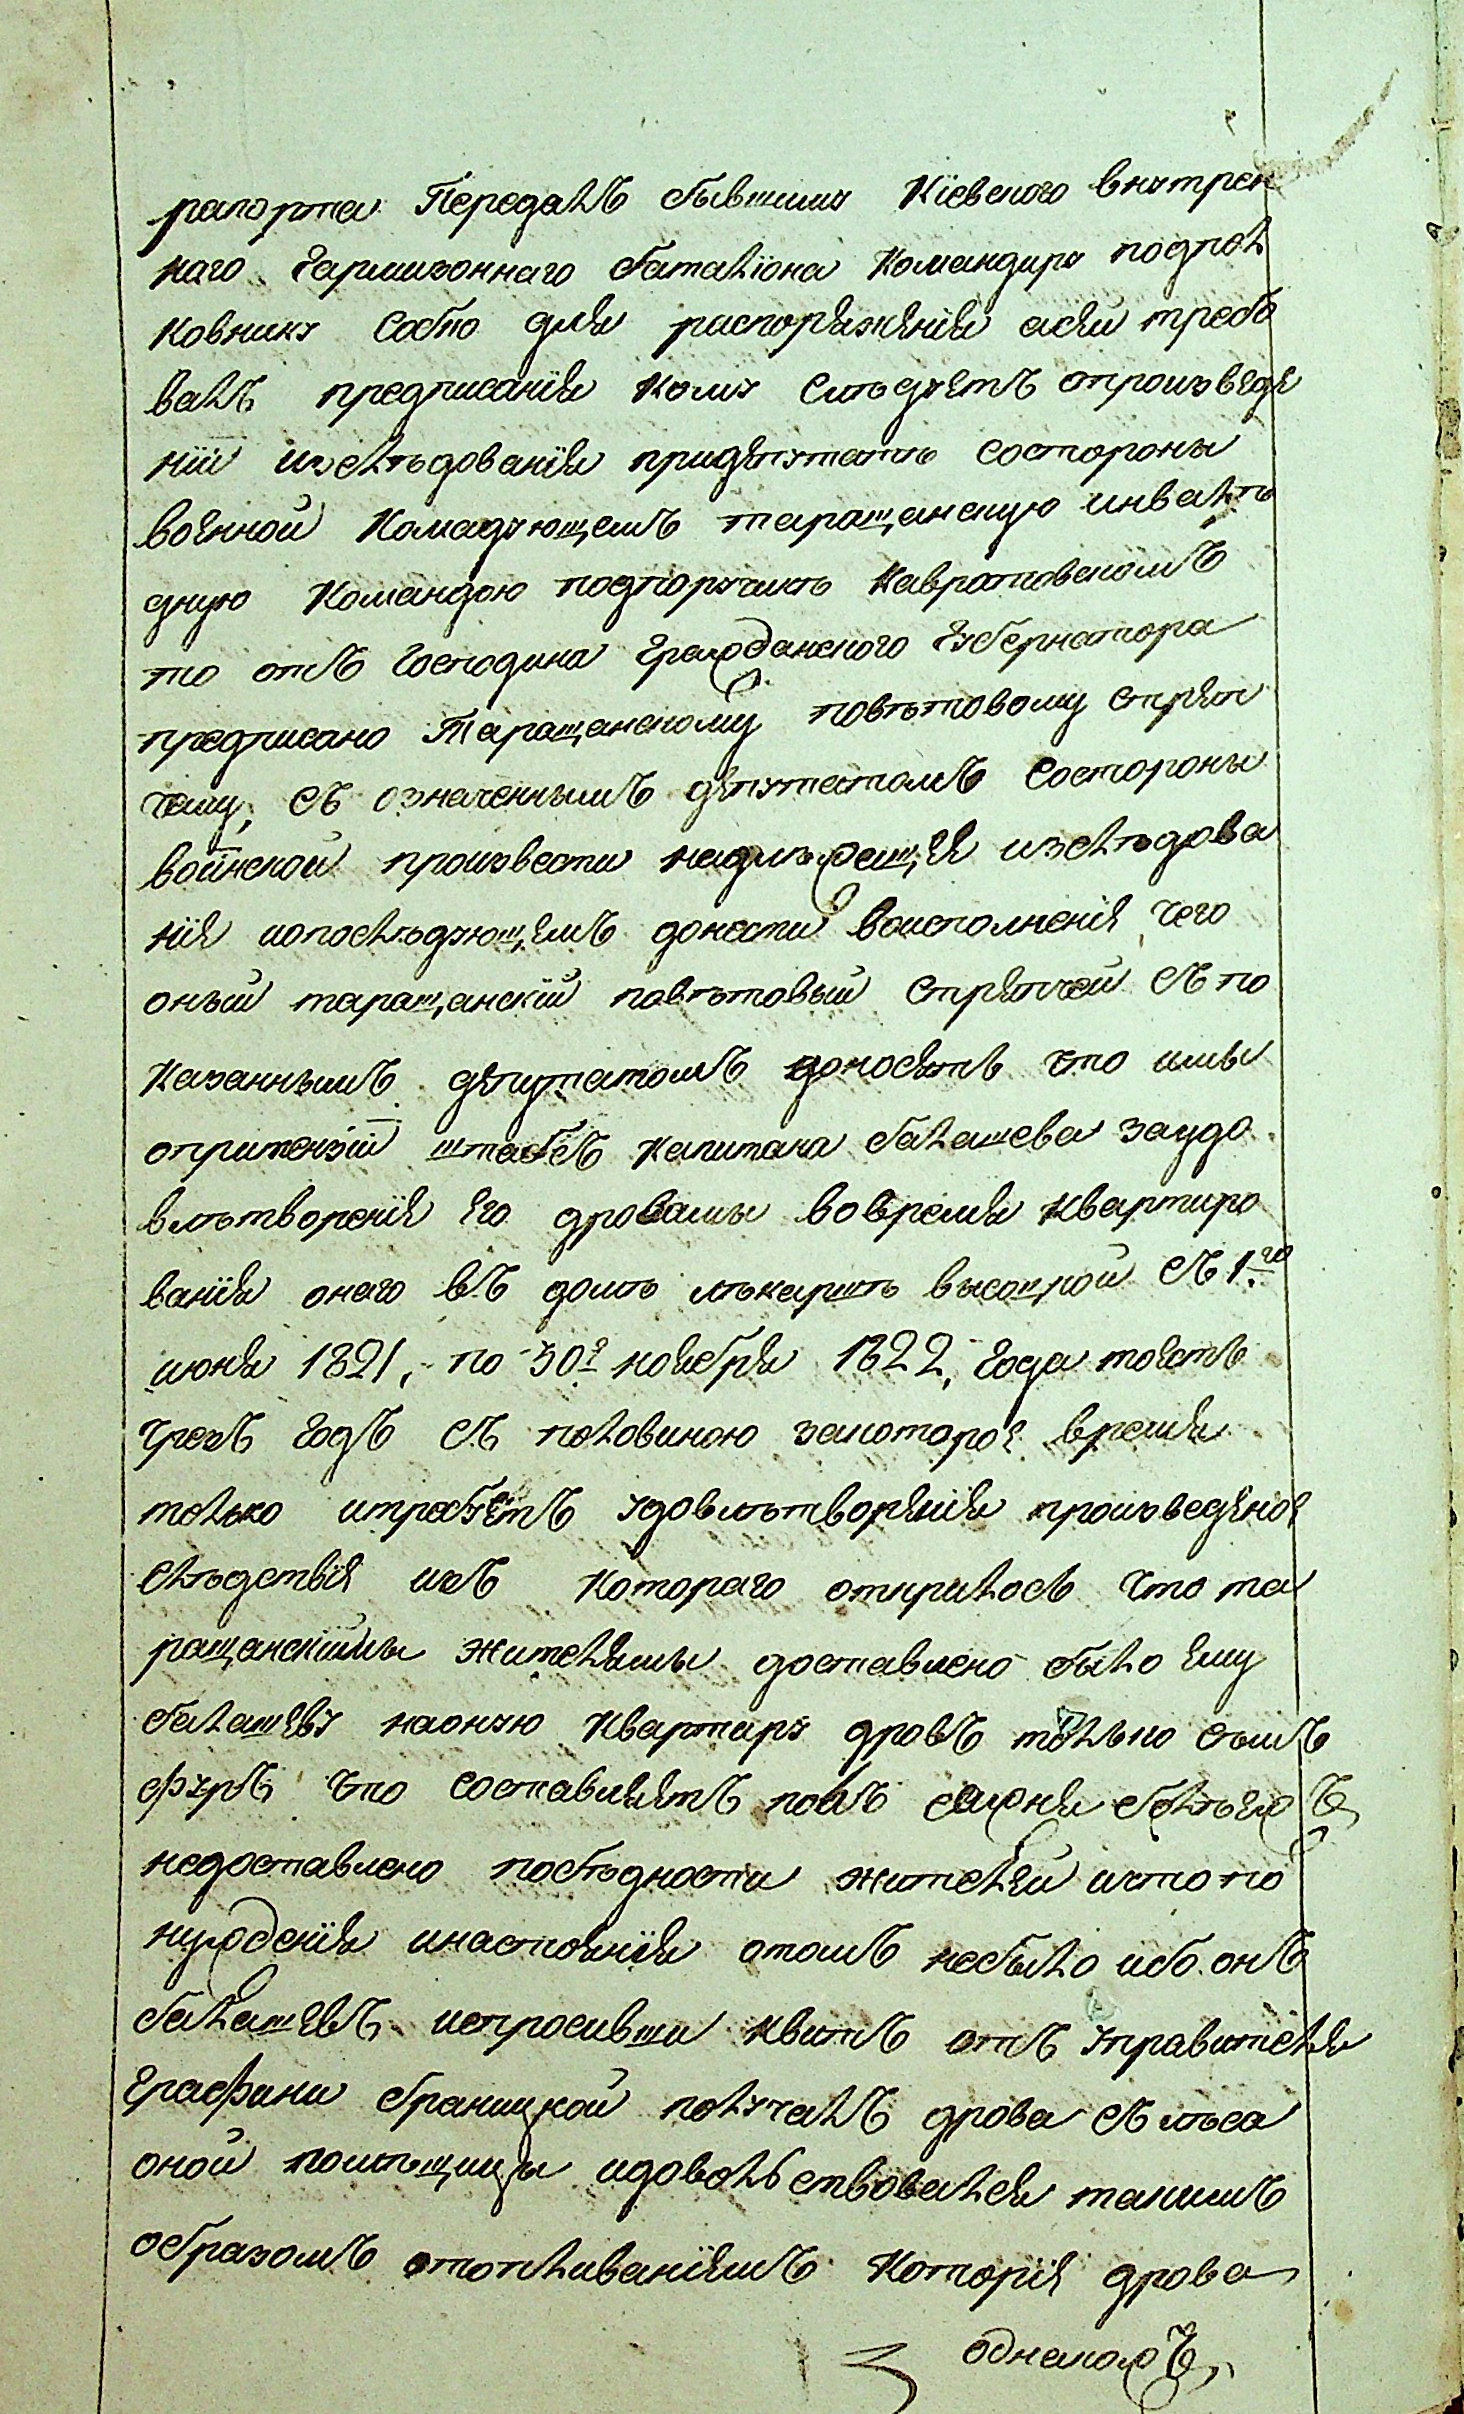 рапорта Передалъ бывшимъ Кіевского внутрен
наго Гарнизоннаго баталіона Командиру подпол
ковнику Собѣю для распоряженія асей требо
валъ предписанія Кому Слѣдуетъ опроизведе
ніи изслѣдованія придепутатѣ состороны
военной Командующемъ таращанскую инвали
дную Командою подпоручикѣ Кавратовскомъ
то отъ Господина Гражданского Губернатора
предписано Таращанскому повѣтовому Стряп
чему, съ означеннымъ депутатомъ состороны
воинской произвести надлѣжащее изслѣдова
ніе ипослѣдующемъ донести воисполненія чего
оный таращанскій повѣтовый Стряпчей съ по
казаннымъ депутатомъ доносятъ что имы
опритензіи штабсъ Капитана балашева заудо
влѣтвореніе Его дровамы вовремя квартиро
ванія онаго въ домѣ лѣкаршѣ высоцкой съ 1.го
июня 1821, по 30е ноября 1822, Года тоесть
чрезъ годъ съ половиною закоторое время
только итребуетъ удовлѣтворенія произведено
слѣдствіе изъ котораго открилось что та
ращанскіимы жителямы доставлено было ему
балашеву наоную квартиру дровъ только съмъ
фуръ что составляетъ полъ сажня болѣежъ
недоставлено побѣдности жителей ичто по
нужденія инастоянія отомъ небыло ибо онъ
балашевъ испросивши квитъ отъ управителя
Графини браницкой получалъ дрова съ лѣса
оной помѣщицы идовольствовался такимъ
образомъ отопливаніемъ которіе дрова
однакожъ